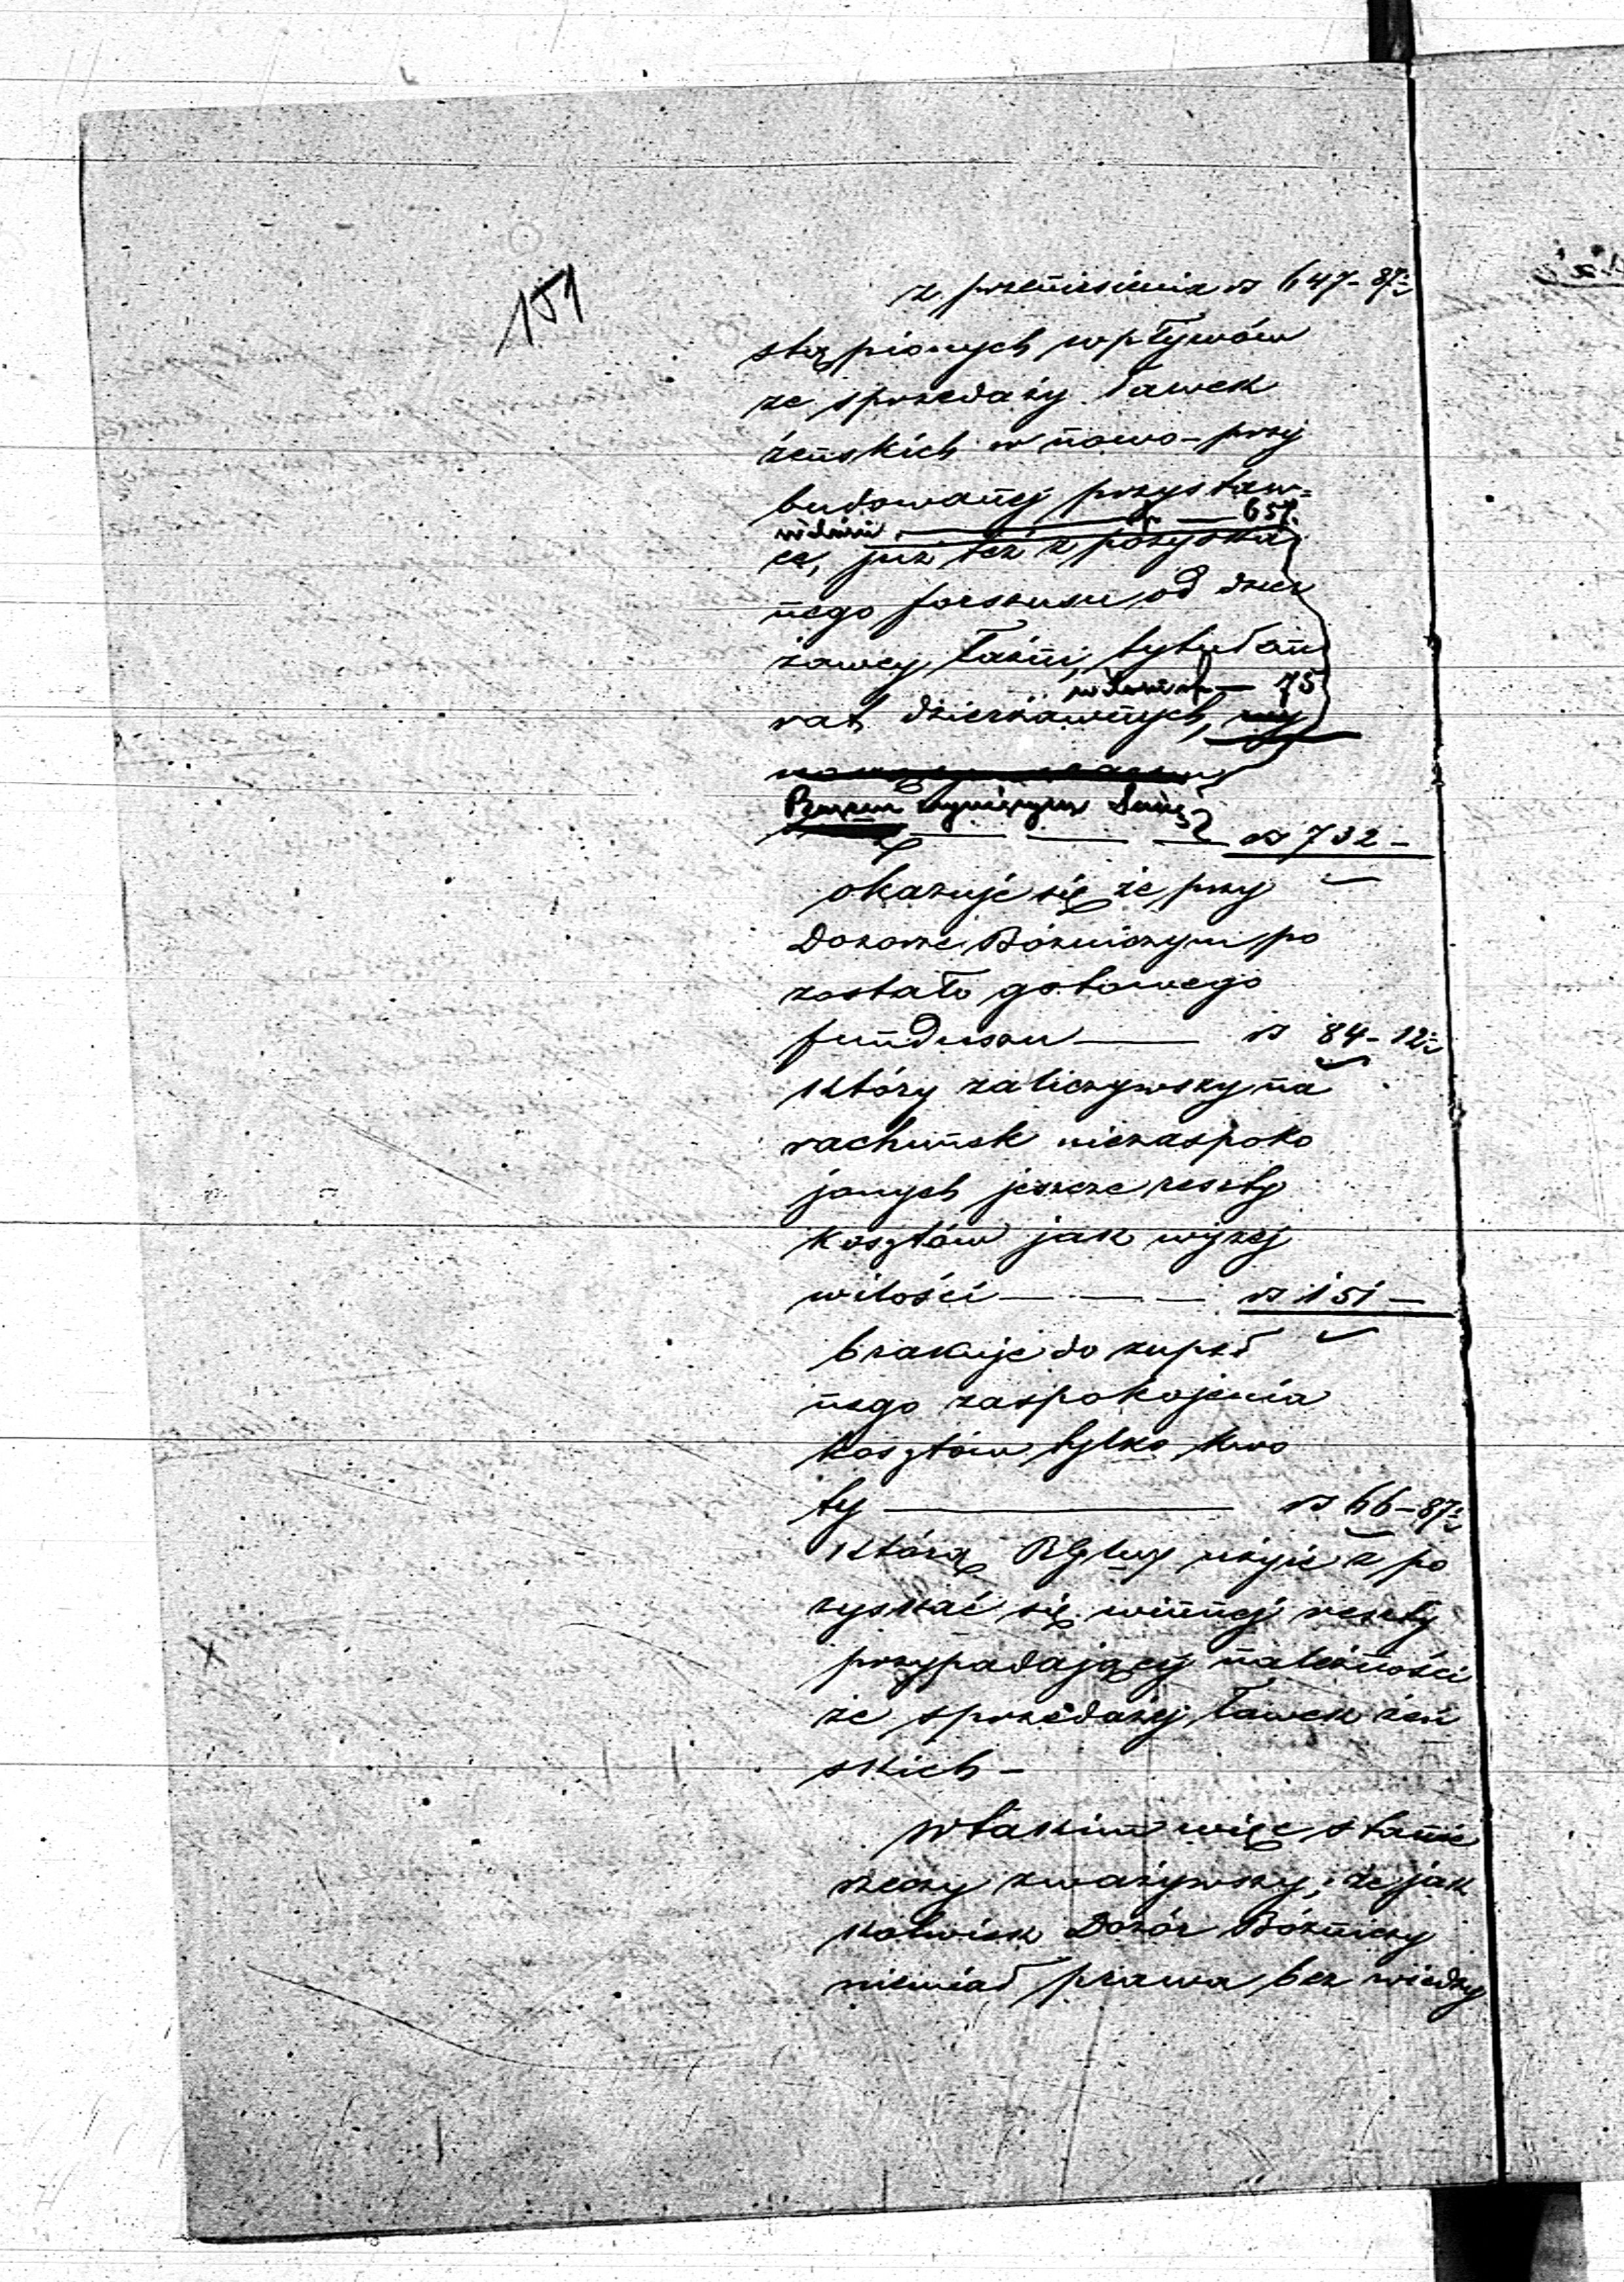 151
z przeniesienia rs 647-87½
stąpionych wpływów
ze sprzedaży ławek
żeńskich w nowo-przy
budowanej przystaw=
wilości r. 657.
ce, już też z pozyska
nego forszusu od dzier
żawcy łaźni, tytułem
wilości r — 75
rat dzierżawnych,
Razem wynoszącym
rs 732 —
okazuje się że przy
Dozorze Bóżniczym po
zostało gotowego
funduszu — rs 84-12½
który zaliczywszy na
rachunek niezaspoko
jonych jeszcze reszty
kosztów jak wyżej
wilości — — — rs 151 —
brakuje do zupeł
nego zaspokojenia
kosztów tylko kwo
ty — rs 66-87½
którą użyje z po
zyskać się winnej reszty
przypadającej należności
ze sprzedażej ławek żeń
skich —
wtakim więc stanie
rzeczy zważywszy, że jak
kolwiek Dozór Bóżniczy
niemiał prawa bez wiedzy